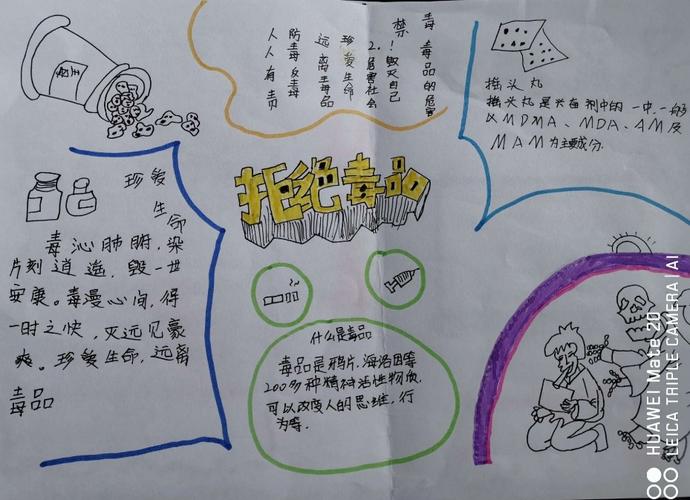 禁毒
毒品的危害
1.毁灭自己
2.危害社会
珍爱生命
远离毒品
防毒反毒
人人有责
摇头丸
摇头丸是兴奋剂中的一中，一般
以MDMA、MDA、AM及
MAM为主要成分.
拒绝毒品
珍爱
生命
毒沁肺腑，染
片刻逍遥，毁一世
安康。毒漫心间，得
一时之快，灭远见豪
爽。珍爱生命，远离
毒品
什么是毒品
毒品是鸦片，海洛因等
200多种精神活性物质，
可以改变人的思维，行
为等.
HUAWEI Mate 20
LEICA TRIPLE CAMERA | AI